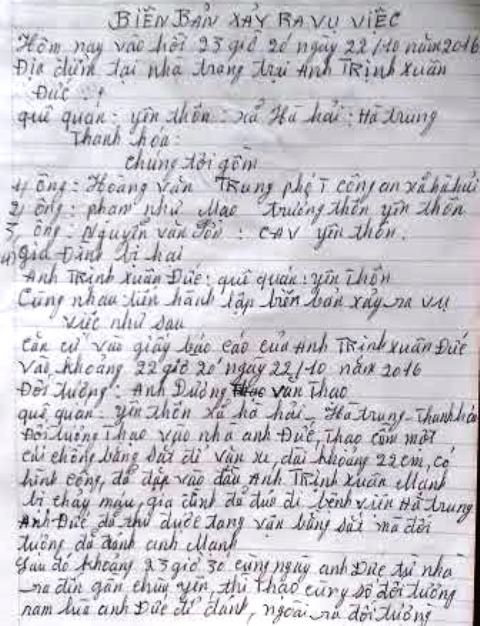 BIÊN BẢN XẢY RA VỤ VIỆC
Hôm nay vào hồi 23 giờ 20 ngày 22/10 năm 2016
Địa điểm tại nhà trang trại Anh Trịnh Xuân
Đức :
quê quán: yên thôn: xã Hà hải: Hà trung
Thanh hóa:
chúng tôi gồm
1, ông: Hoàng văn Trung phó T công an xã hà hải
2, ông: phạm như Mạo trưởng thôn yên thôn
3, ông: Nguyễn văn : CAV yên thôn.
4, Gia Đình bị hại
Anh Trịnh Xuân Đức: quê quán: yên Thôn
Cùng nhau tiến hành lập biên bản xảy ra vụ
việc như sau
căn cứ vào giấy báo cáo của Anh Trịnh xuân Đức
vào khoảng 22 giờ 20 ngày 22/10 năm 2016
Đối tượng: Anh Dương văn Thao
quê quán: yên thôn xã hà hải - Hà trung - Thanh hóa
Đối tượng Thao vào nhà anh Đức, Thao cầm một
cái bằng sắt để văn xe, dài khoảng 22cm, có
hình công, đã đập vào đầu Anh Trịnh Xuân Mạnh
bị chảy máu, gia đã đưa đi bệnh viện Hà trung
Anh Đức đã thu được tang vật bằng sắt mà đối
tượng đã đánh anh Mạnh
Sau đó khoảng 23 giờ 30 cùng ngày anh Đức từ nhà
ra đến gần yên, thì Thao cùng số đối tượng
anh Đức để đánh, ngoài ra đối tượng